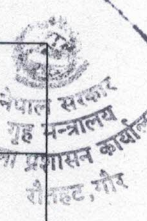 नेपाल सरकार
गृह मन्त्रालय
प्रशासन कार्यालय
रौतहट, गौर